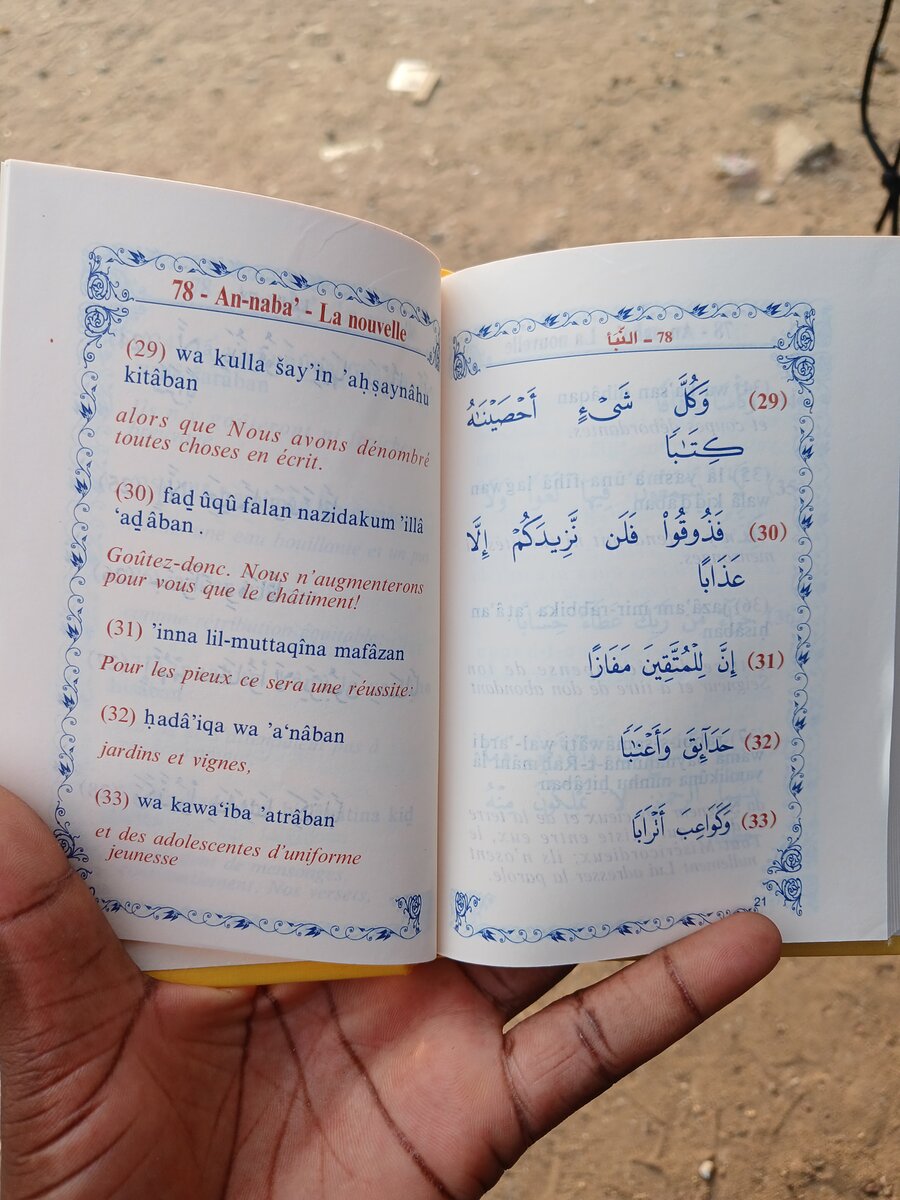 78 - An-naba’ - La nouvelle
(29) wa kulla šay’in ’aḥṣaynâhu
kitâban
alors que Nous avons dénombré
toutes choses en écrit.
(30) faḏ ûqû falan nazidakum ’illâ
‘aḏ âban .
Goûtez-donc. Nous n’augmenterons
pour vous que le châtiment!
(31) ’inna lil-muttaqîna mafâzan
Pour les pieux ce sera une réussite:
(32) ḥadâ’iqa wa ’a‘nâban
jardins et vignes,
(33) wa kawa‘iba ’atrâban
et des adolescentes d’uniforme
jeunesse
78 – النَّبَأ
(29) وَكُلَّ شَىْءٍ أَحْصَيْنَٰهُ
كِتَٰبًا
(30) فَذُوقُوا۟ فَلَن نَّزِيدَكُمْ إِلَّا
عَذَابًا
(31) إِنَّ لِلْمُتَّقِينَ مَفَازًا
(32) حَدَآئِقَ وَأَعْنَٰبًا
(33) وَكَوَاعِبَ أَتْرَابًا
21